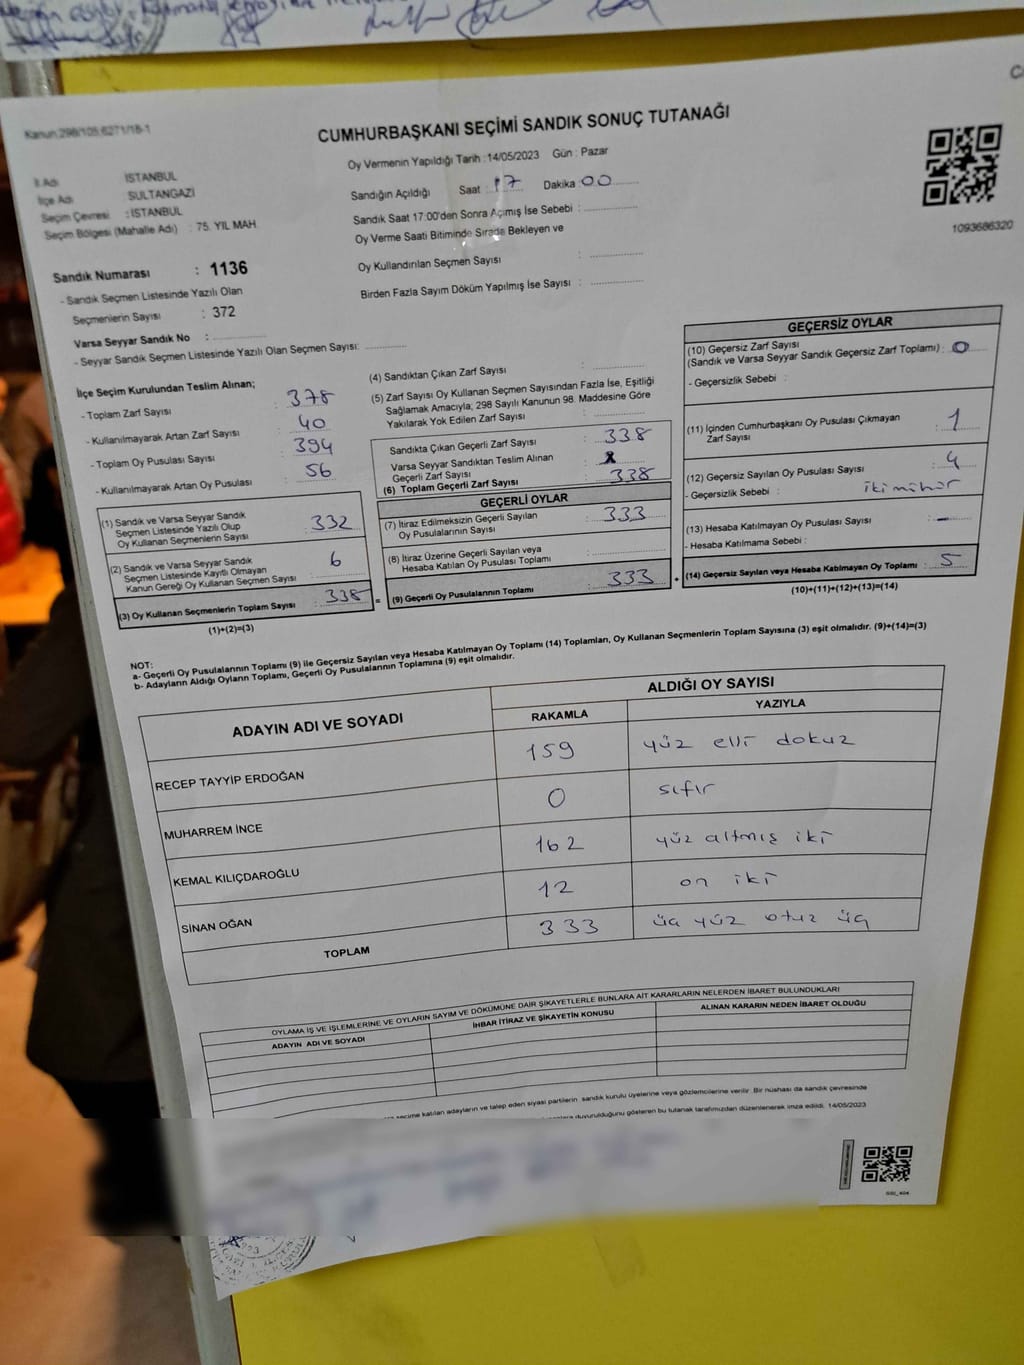 Kanun:298/105;6271/18-1
CUMHURBAŞKANI SEÇİMİ SANDIK SONUÇ TUTANAĞI
Oy Vermenin Yapıldığı Tarih :14/05/2023 Gün : Pazar
İl Adı : İSTANBUL
İlçe Adı : SULTANGAZİ
Seçim Çevresi : İSTANBUL
Seçim Bölgesi (Mahalle Adı) : 75. YIL MAH.
Sandığın Açıldığı Saat : 17 Dakika : 00
Sandık Saat 17:00'den Sonra Açımış İse Sebebi :
Oy Verme Saati Bitiminde Sırada Bekleyen ve
Oy Kullandırılan Seçmen Sayısı :
Birden Fazla Sayım Döküm Yapılmış İse Sayısı :
1093686320
Sandık Numarası : 1136
- Sandık Seçmen Listesinde Yazılı Olan
Seçmenlerin Sayısı : 372
Varsa Seyyar Sandık No :
- Seyyar Sandık Seçmen Listesinde Yazılı Olan Seçmen Sayısı:
İlçe Seçim Kurulundan Teslim Alınan;
- Toplam Zarf Sayısı : 378
- Kullanılmayarak Artan Zarf Sayısı : 40
- Toplam Oy Pusulası Sayısı : 394
- Kullanılmayarak Artan Oy Pusulası : 56
(1) Sandık ve Varsa Seyyar Sandık
Seçmen Listesinde Yazılı Olup
Oy Kullanan Seçmenlerin Sayısı : 332
(2) Sandık ve Varsa Seyyar Sandık
Seçmen Listesinde Kayıtlı Olmayan
Kanun Gereği Oy Kullanan Seçmen Sayısı : 6
(3) Oy Kullanan Seçmenlerin Toplam Sayısı : 338 =
(1)+(2)=(3)
(4) Sandıktan Çıkan Zarf Sayısı :
(5) Zarf Sayısı Oy Kullanan Seçmen Sayısından Fazla İse, Eşitliği
Sağlamak Amacıyla; 298 Sayılı Kanunun 98. Maddesine Göre
Yakılarak Yok Edilen Zarf Sayısı :
Sandıkta Çıkan Geçerli Zarf Sayısı : 338
Varsa Seyyar Sandıktan Teslim Alınan
Geçerli Zarf Sayısı :
(6) Toplam Geçerli Zarf Sayısı : 338
GEÇERLİ OYLAR
(7) İtiraz Edilmeksizin Geçerli Sayılan
Oy Pusulalarının Sayısı : 333
(8) İtiraz Üzerine Geçerli Sayılan veya
Hesaba Katılan Oy Pusulası Toplamı :
(9) Geçerli Oy Pusulalarının Toplamı : 333 +
GEÇERSİZ OYLAR
(10) Geçersiz Zarf Sayısı
(Sandık ve Varsa Seyyar Sandık Geçersiz Zarf Toplamı) : 0
- Geçersizlik Sebebi :
(11) İçinden Cumhurbaşkanı Oy Pusulası Çıkmayan
Zarf Sayısı : 1
(12) Geçersiz Sayılan Oy Pusulası Sayısı : 4
- Geçersizlik Sebebi : iki mühür
(13) Hesaba Katılmayan Oy Pusulası Sayısı : -
- Hesaba Katılmama Sebebi :
(14) Geçersiz Sayılan veya Hesaba Katılmayan Oy Toplamı : 5
(10)+(11)+(12)+(13)=(14)
NOT:
a- Geçerli Oy Pusulalarının Toplamı (9) ile Geçersiz Sayılan veya Hesaba Katılmayan Oy Toplamı (14) Toplamları, Oy Kullanan Seçmenlerin Toplam Sayısına (3) eşit olmalıdır. (9)+(14)=(3)
b- Adayların Aldığı Oyların Toplamı, Geçerli Oy Pusulalarının Toplamına (9) eşit olmalıdır.
ADAYIN ADI VE SOYADI ALDIĞI OY SAYISI
RAKAMLA YAZIYLA
RECEP TAYYİP ERDOĞAN 159 yüz elli dokuz
MUHARREM İNCE 0 sıfır
KEMAL KILIÇDAROĞLU 162 yüz altmış iki
SİNAN OĞAN 12 on iki
TOPLAM 333 üç yüz otuz üç
OYLAMA İŞ VE İŞLEMLERİNE VE OYLARIN SAYIM VE DÖKÜMÜNE DAİR ŞİKAYETLERLE BUNLARA AİT KARARLARIN NELERDEN İBARET BULUNDUKLARI
ADAYIN ADI VE SOYADI İHBAR İTİRAZ VE ŞİKAYETİN KONUSU ALINAN KARARIN NEDEN İBARET OLDUĞU
seçime katılan adayların ve talep eden siyasi partilerin sandık kurulu üyelerine veya gözlemcilerine verilir. Bir nüshası da sandık çevresinde
duyurulduğunu gösteren bu tutanak tarafımızdan düzenlenerek imza edildi. 14/05/2023